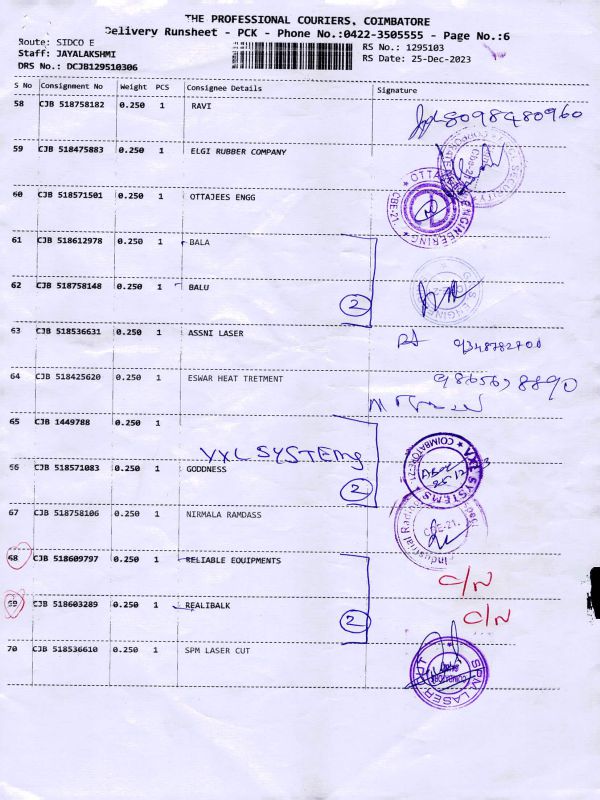 THE PROFESSIONAL COURIERS, COIMBATORE
Delivery Runsheet - PCK - Phone No.:0422-3505555 - Page No.:6
Route: SIDCO E
Staff: JAYALAKSHMI
DRS No.: DCJB129510306
RS No.: 1295103
RS Date: 25-Dec-2023
S No Consignment No Weight PCS Consignee Details Signature
58 CJB 518758182 0.250 1 RAVI 8098480960
59 CJB 518475883 0.250 1 ELGI RUBBER COMPANY
60 CJB 518571501 0.250 1 OTTAJEES ENGG
ENGINEERING CBE-21
61 CJB 518612978 0.250 1 BALA
62 CJB 518758148 0.250 1 BALU
2
63 CJB 518536631 0.250 1 ASSNI LASER 9348782701
64 CJB 518425620 0.250 1 ESWAR HEAT TRETMENT
65 CJB 1449788 0.250 1
VXL SYSTEMS
VXL SYSTEMS COIMBATORE-21
66 CJB 518571083 0.250 1 GODDNESS
2
67 CJB 518758106 0.250 1 NIRMALA RAMDASS
CBE-21.
68 CJB 518609797 0.250 1 RELIABLE EQUIPMENTS C/N
69 CJB 518603289 0.250 1 REALIBALK C/N
2
70 CJB 518536610 0.250 1 SPM LASER CUT
SPM LASER